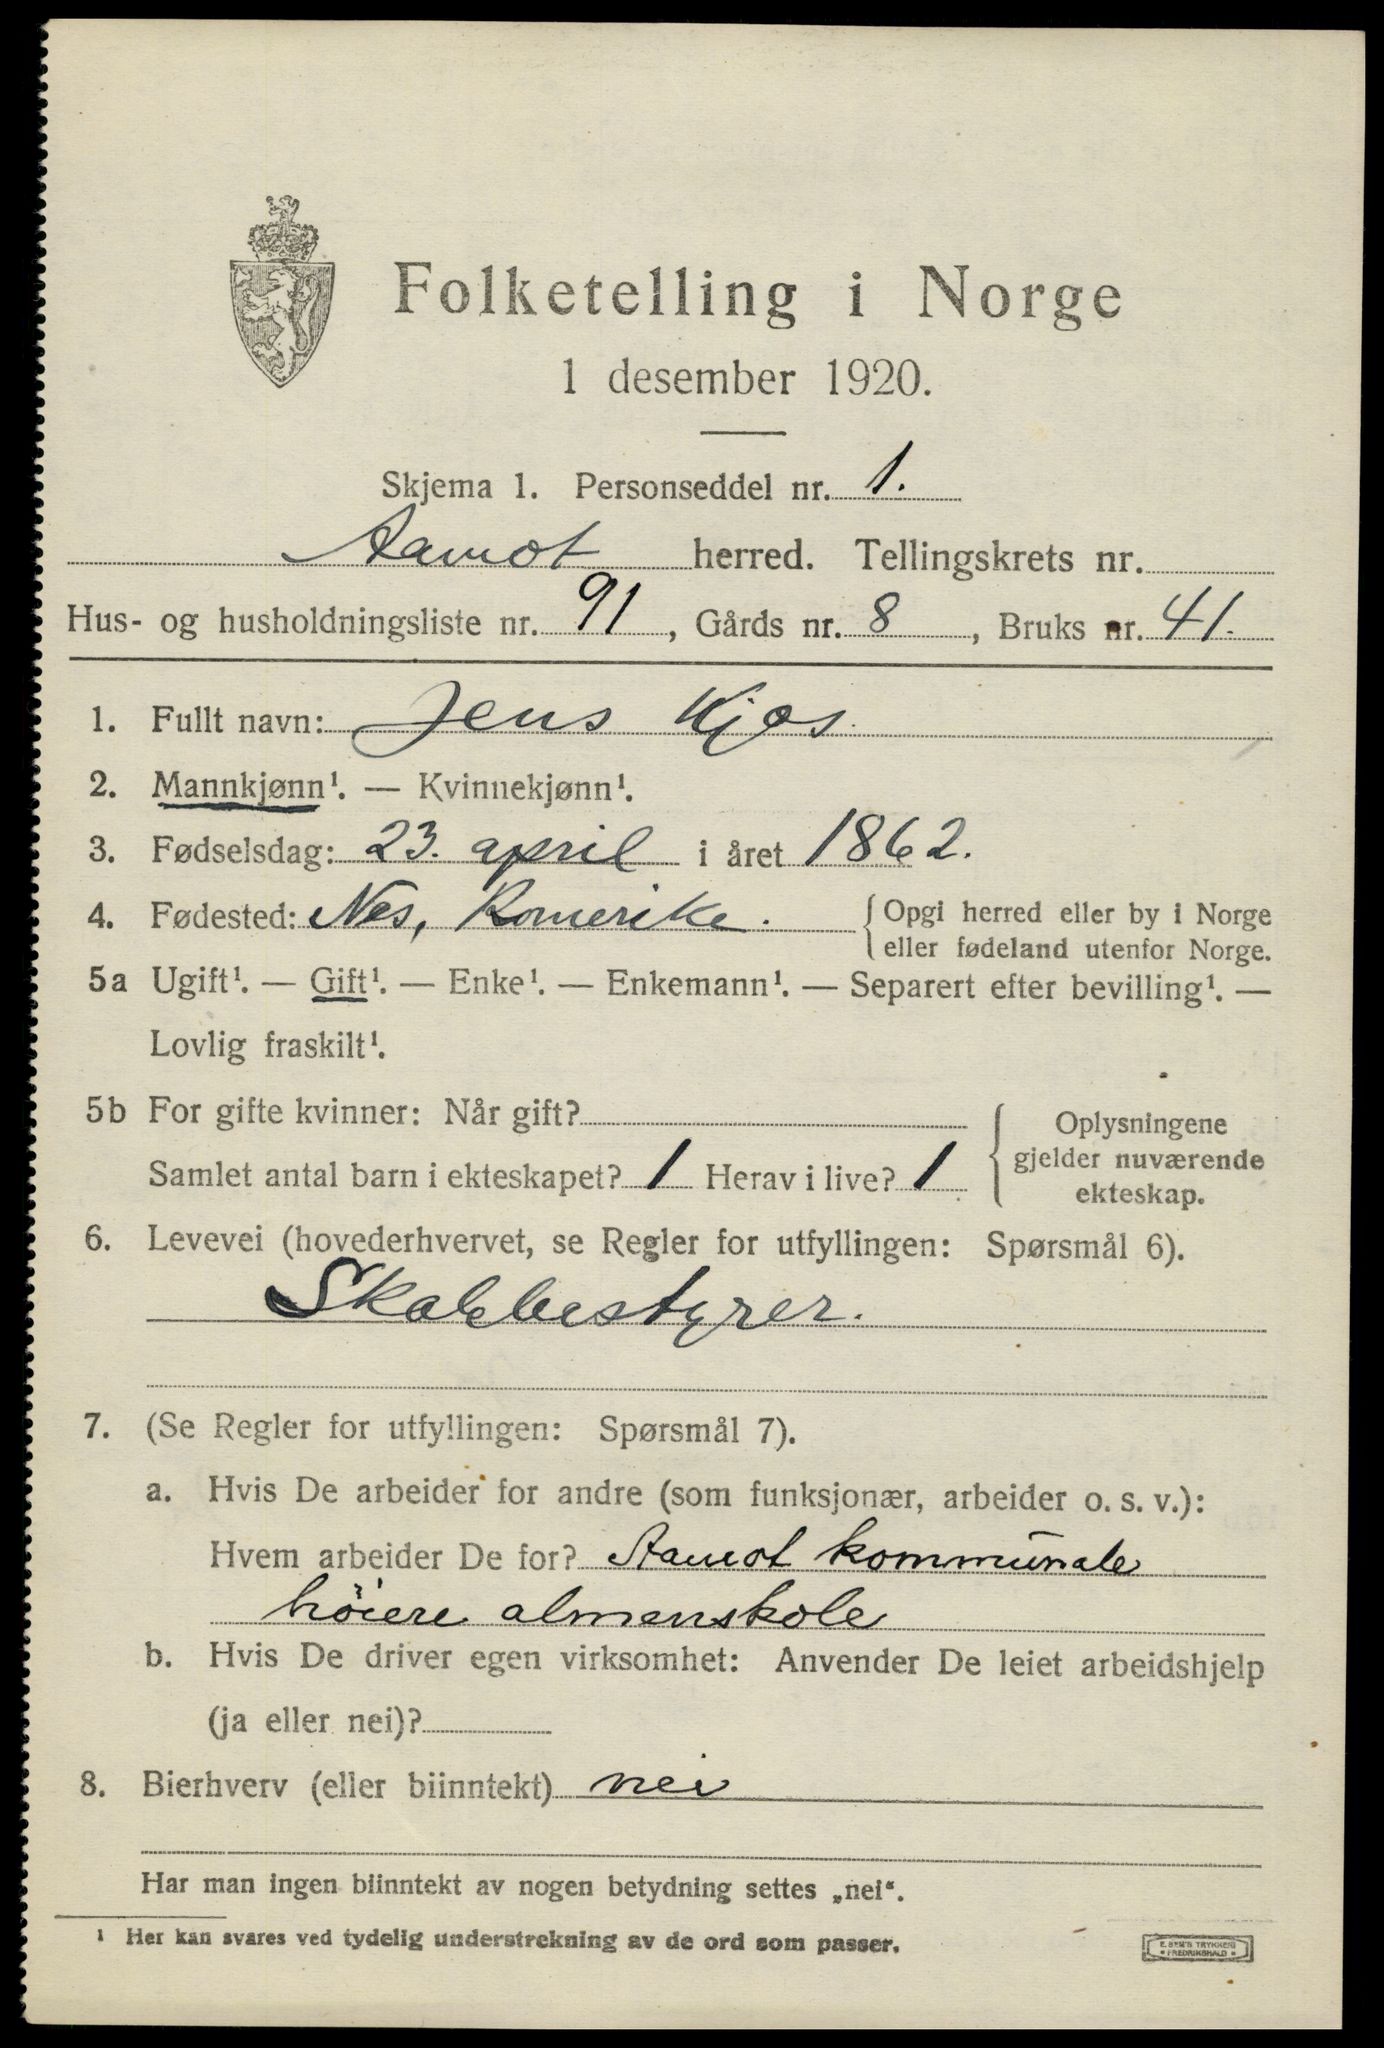 Folketelling i Norge
1 desember 1920.
Skjema 1. Personseddel nr. 1.
Aamot herred. Tellingskrets nr.
Hus- og husholdningsliste nr. 91, Gårds nr. 8, Bruks nr. 41.
1. Fullt navn: Jens Kjos.
2. Mannkjønn¹. — Kvinnekjønn¹.
3. Fødselsdag: 23. april i året 1862.
4. Fødested: Nes, Romerike. {Opgi herred eller by i Norge
eller fødeland utenfor Norge.
5a Ugift¹. — Gift¹. — Enke¹. — Enkemann¹. — Separert efter bevilling¹. —
Lovlig fraskilt¹.
5b For gifte kvinner: Når gift?
Oplysningene
Samlet antal barn i ekteskapet? 1 Herav i live? 1
gjelder nuværende
ekteskap.
6. Levevei (hovederhvervet, se Regler for utfyllingen: Spørsmål 6).
Skolebestyrer.
7. (Se Regler for utfyllingen: Spørsmål 7).
a. Hvis De arbeider for andre (som funksjonær, arbeider o. s. v.):
Hvem arbeider De for? Aamot kommunale
höiere almenskole
b. Hvis De driver egen virksomhet: Anvender De leiet arbeidshjelp
(ja eller nei)?
8. Bierhverv (eller biinntekt) nei
Har man ingen biinntekt av nogen betydning settes „nei“.
¹ Her kan svares ved tydelig understrekning av de ord som passer.
E. SEM'S TRYKKERI
• FREDRIKSHALD •